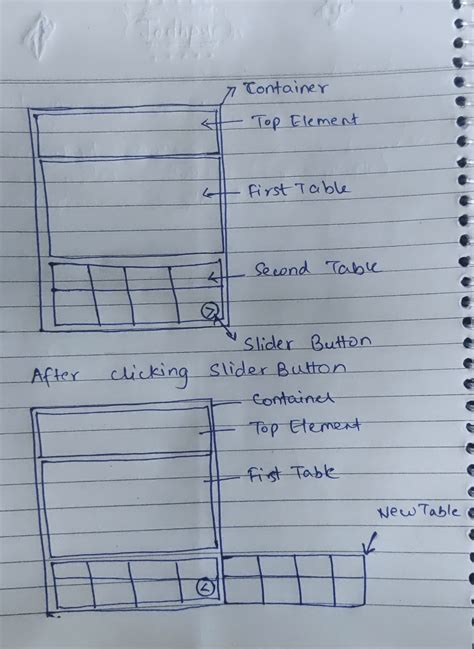 Container
Top Element
First Table
Second Table
>
Slider Button
After clicking Slider Button
Container
Top Element
First Table
New Table
<